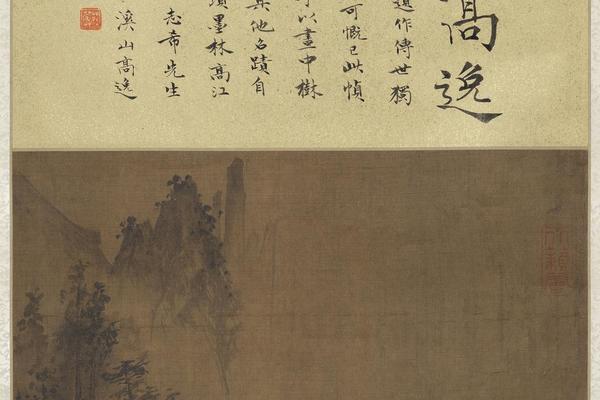 高逸
遺作傳世獨
可慨已此幀
以畫中樹
其他名蹟自
項墨林高江
志希先生
溪山高逸